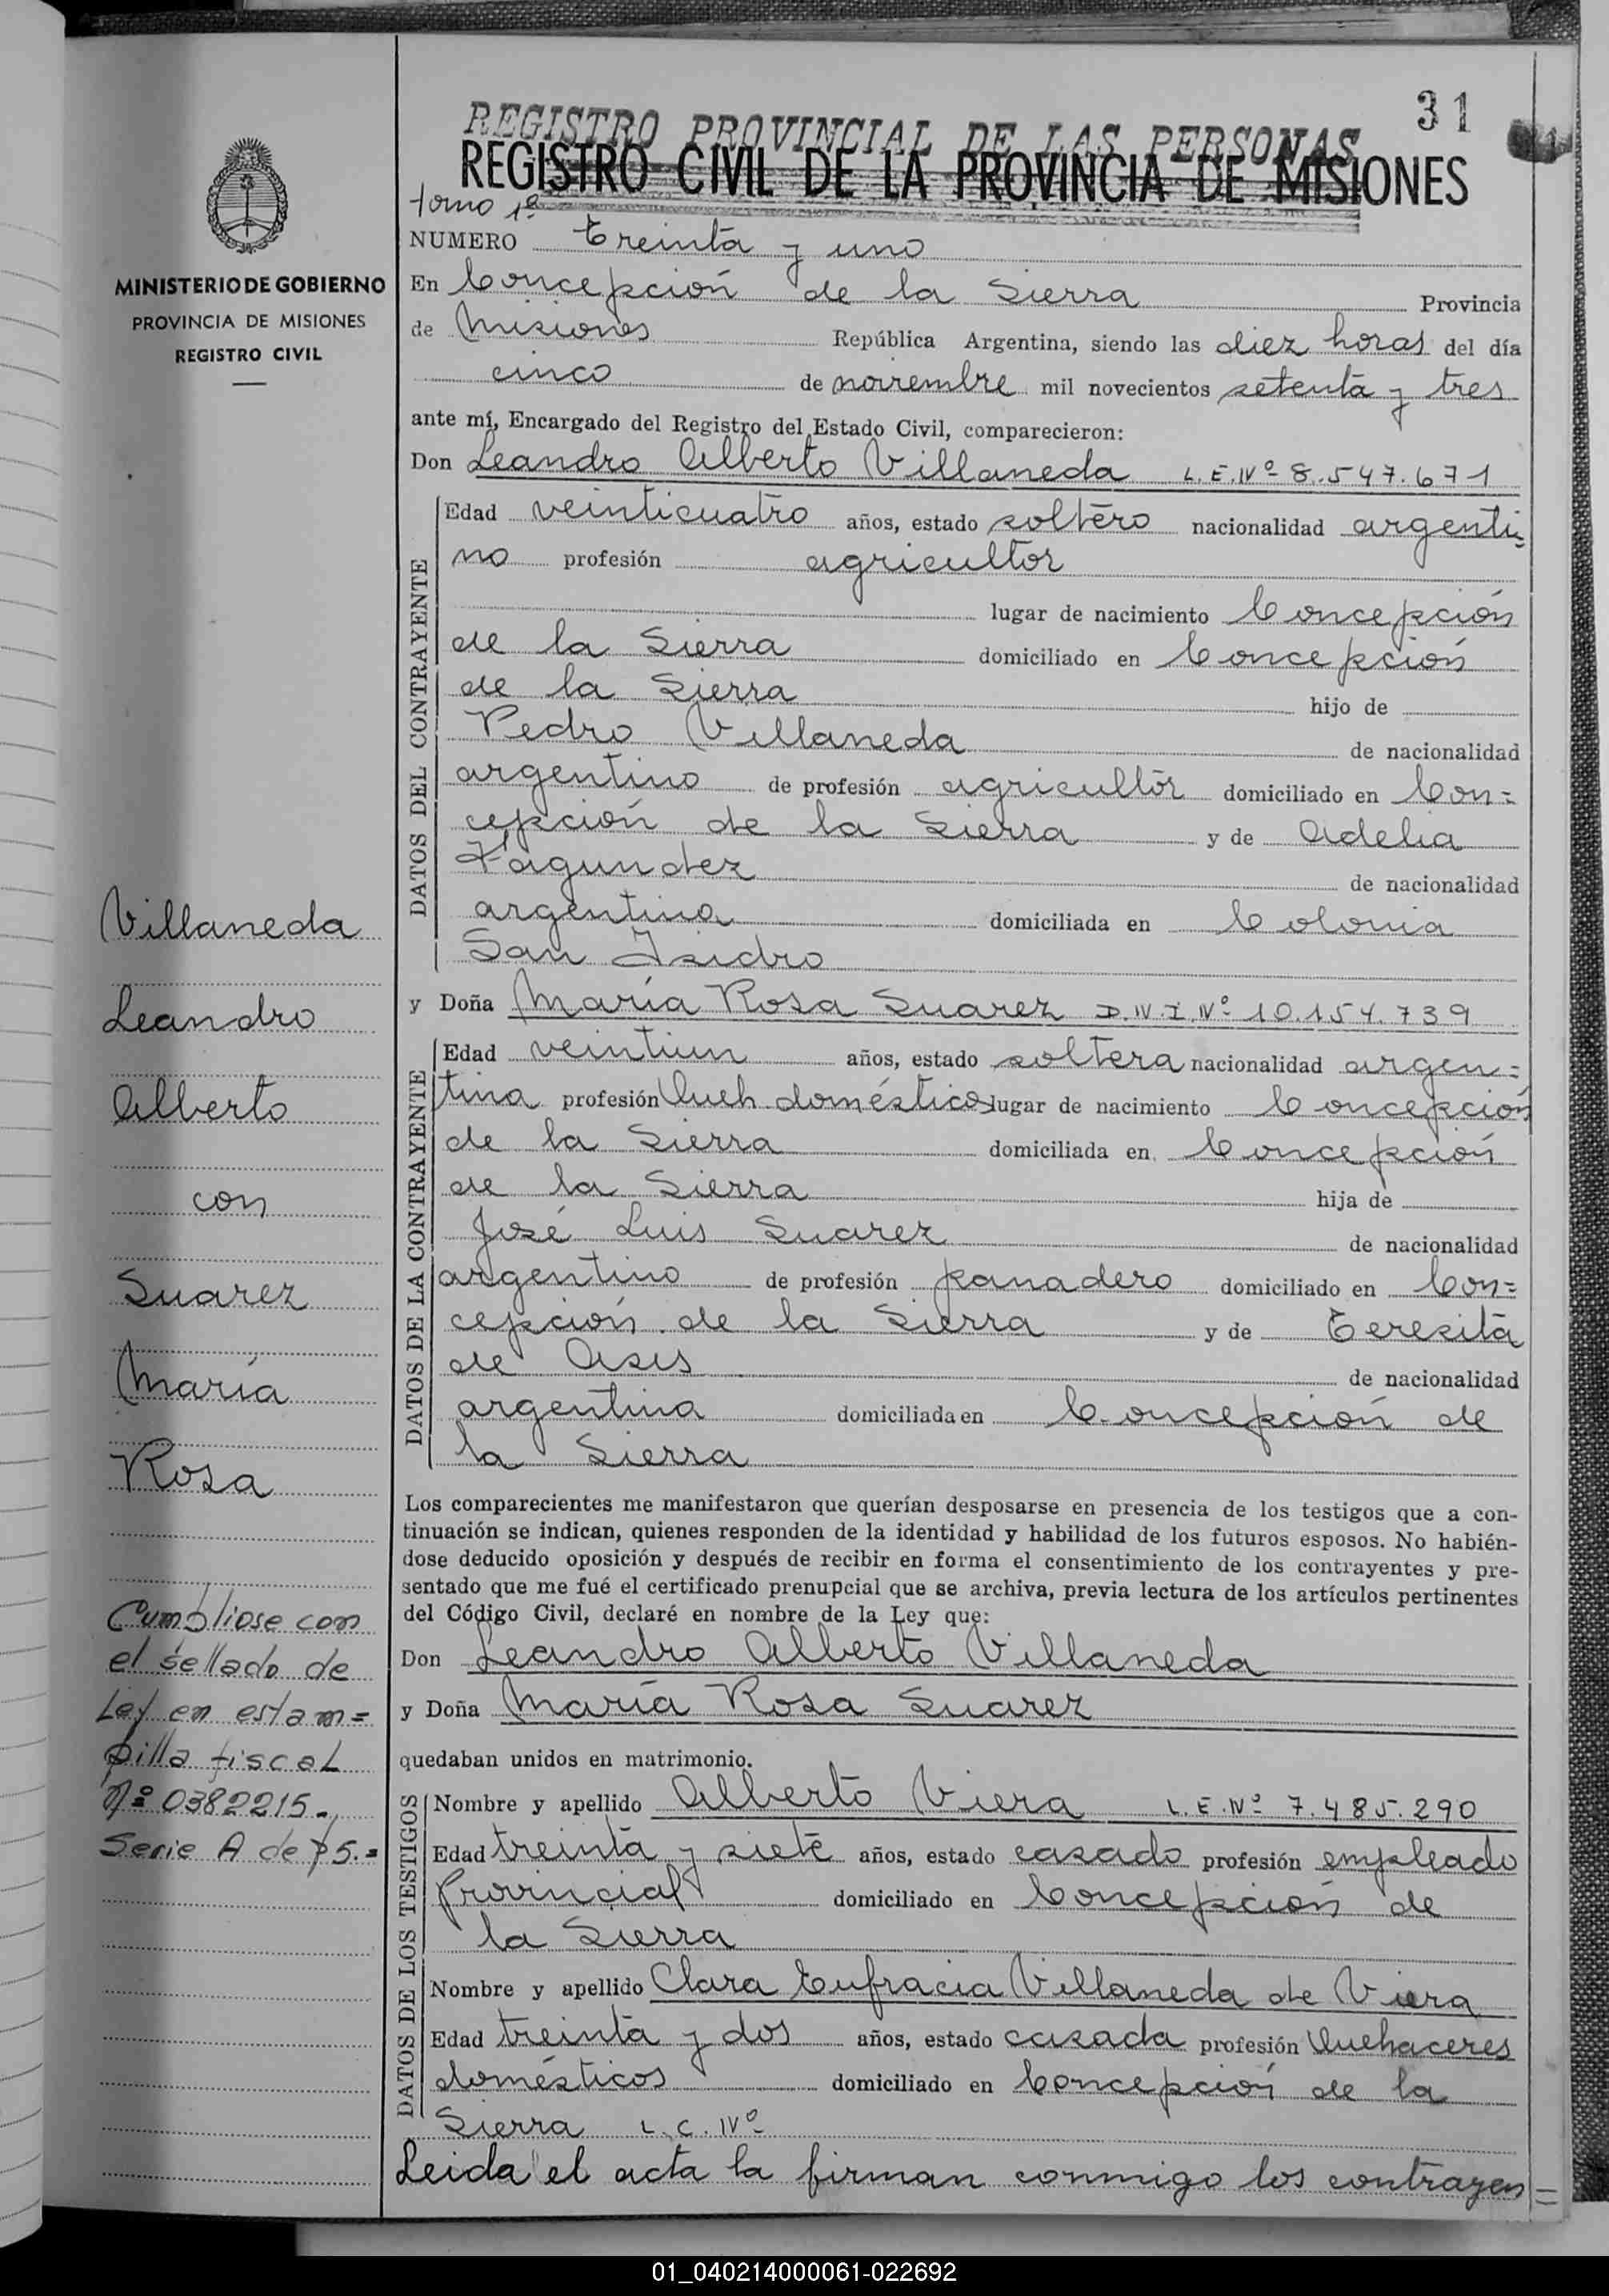 31
REGISTRO PROVINCIAL DE LAS PERSONAS
REGISTRO CIVIL DE LA PROVINCIA DE MISIONES
tomo 1º
MINISTERIO DE GOBIERNO
PROVINCIA DE MISIONES
REGISTRO CIVIL
NUMERO Treinta y uno
En Concepción de la Sierra Provincia
de Misiones República Argentina, siendo las diez horas del día
cinco de noviembre mil novecientos setenta y tres
ante mí, Encargado del Registro del Estado Civil, comparecieron:
Don Leandro Alberto Villaneda L.E.Nº 8.547.671
DATOS DEL CONTRAYENTE
Edad veinticuatro años, estado soltero nacionalidad argenti=
no profesión agricultor
lugar de nacimiento Concepción
de la Sierra domiciliado en Concepción
de la Sierra hijo de
Pedro Villaneda de nacionalidad
argentino de profesión agricultor domiciliado en Con=
cepción de la Sierra y de Adelia
Fagundez de nacionalidad
argentina domiciliada en Colonia
San Isidro
y Doña María Rosa Suarez D.N.I.Nº 10.154.739
DATOS DE LA CONTRAYENTE
Edad veintiun años, estado soltera nacionalidad argen=
tina profesión Queh. domésticos lugar de nacimiento Concepción
de la Sierra domiciliada en Concepción
de la Sierra hija de
José Luis Suarez de nacionalidad
argentino de profesión panadero domiciliado en Con=
cepción de la Sierra y de Teresita
de Asis de nacionalidad
argentina domiciliada en Concepción de
la Sierra
Los comparecientes me manifestaron que querían desposarse en presencia de los testigos que a con-
tinuación se indican, quienes responden de la identidad y habilidad de los futuros esposos. No habién-
dose deducido oposición y después de recibir en forma el consentimiento de los contrayentes y pre-
sentado que me fué el certificado prenupcial que se archiva, previa lectura de los artículos pertinentes
del Código Civil, declaré en nombre de la Ley que:
Don Leandro Alberto Villaneda
y Doña María Rosa Suarez
quedaban unidos en matrimonio.
DATOS DE LOS TESTIGOS
Nombre y apellido Alberto Viera L.E.Nº 7.485.290
Edad treinta y siete años, estado casado profesión empleado
Provincial domiciliado en Concepción de
la Sierra
Nombre y apellido Clara Eufracia Villaneda de Viera
Edad treinta y dos años, estado casada profesión Quehaceres
domésticos domiciliado en Concepción de la
Sierra L.C.Nº
Leida el acta la firman conmigo los contrayen=
Villaneda
Leandro
Alberto
con
Suarez
María
Rosa
Cumpliose con
el sellado de
Ley en estam=
pilla fiscal
Nº 0382215.
Serie A de $5.=
01_040214000061-022692